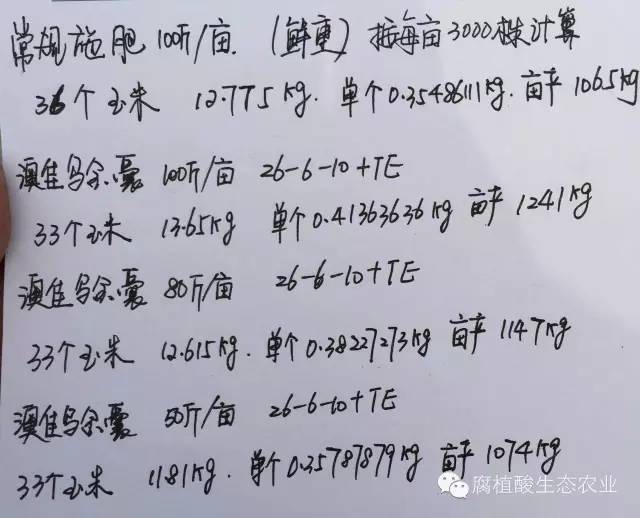 常规施肥 100斤/亩 (鲜重) 按每亩3000株计算
36个玉米 12.775kg. 单个0.3548611kg. 亩产1065kg
澳佳乌金囊 100斤/亩 26-6-10+TE
33个玉米 13.65kg 单个0.41363636kg 亩产1241kg
澳佳乌金囊 80斤/亩 26-6-10+TE
33个玉米 12.615kg. 单个0.38227273kg 亩产1147kg
澳佳乌金囊 50斤/亩 26-6-10+TE
33个玉米 11.81kg. 单个0.35787879kg 亩产1074kg
腐植酸生态农业